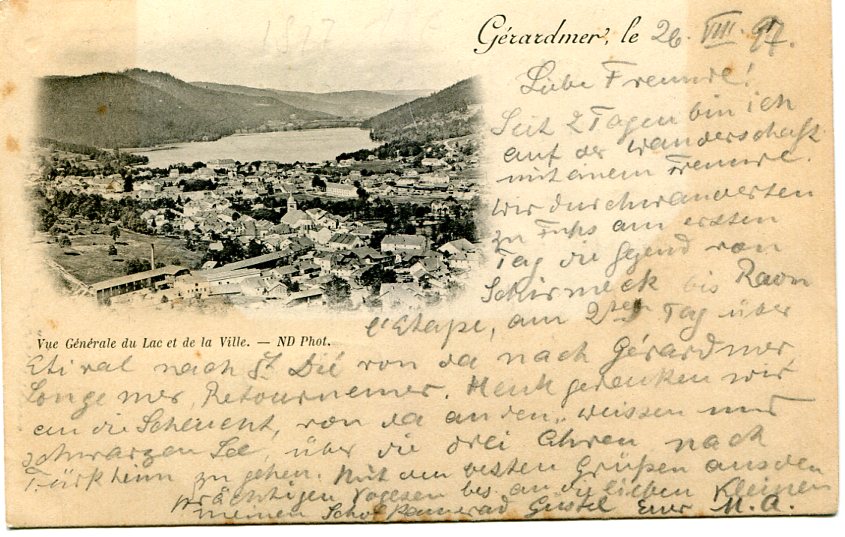 Gérardmer, le 26. VIII. 97.
Liebe Freunde!
Seit 2 Tagen bin ich
auf der Wanderschaft
mit einem Freunde.
Wir durchwanderten
zu Fuss am ersten
Tag die Gegend von
Schirmeck bis Raon
l'Etape, am 2ten Tag über
Vue Générale du Lac et de la Ville. — ND Phot.
Etival nach St Dié von da nach Gérardmer,
Longemer, Retournemer. Heut gedenken wir
an die Schlucht, von da an den weissen und
schwarzen See, über die drei Ähren nach
Türkheim zu gehen. Mit den besten Grüßen aus den
prächtigen Vogesen bis an die lieben Kleinen
meinen Schulkamerad Gustel Euer M. A.